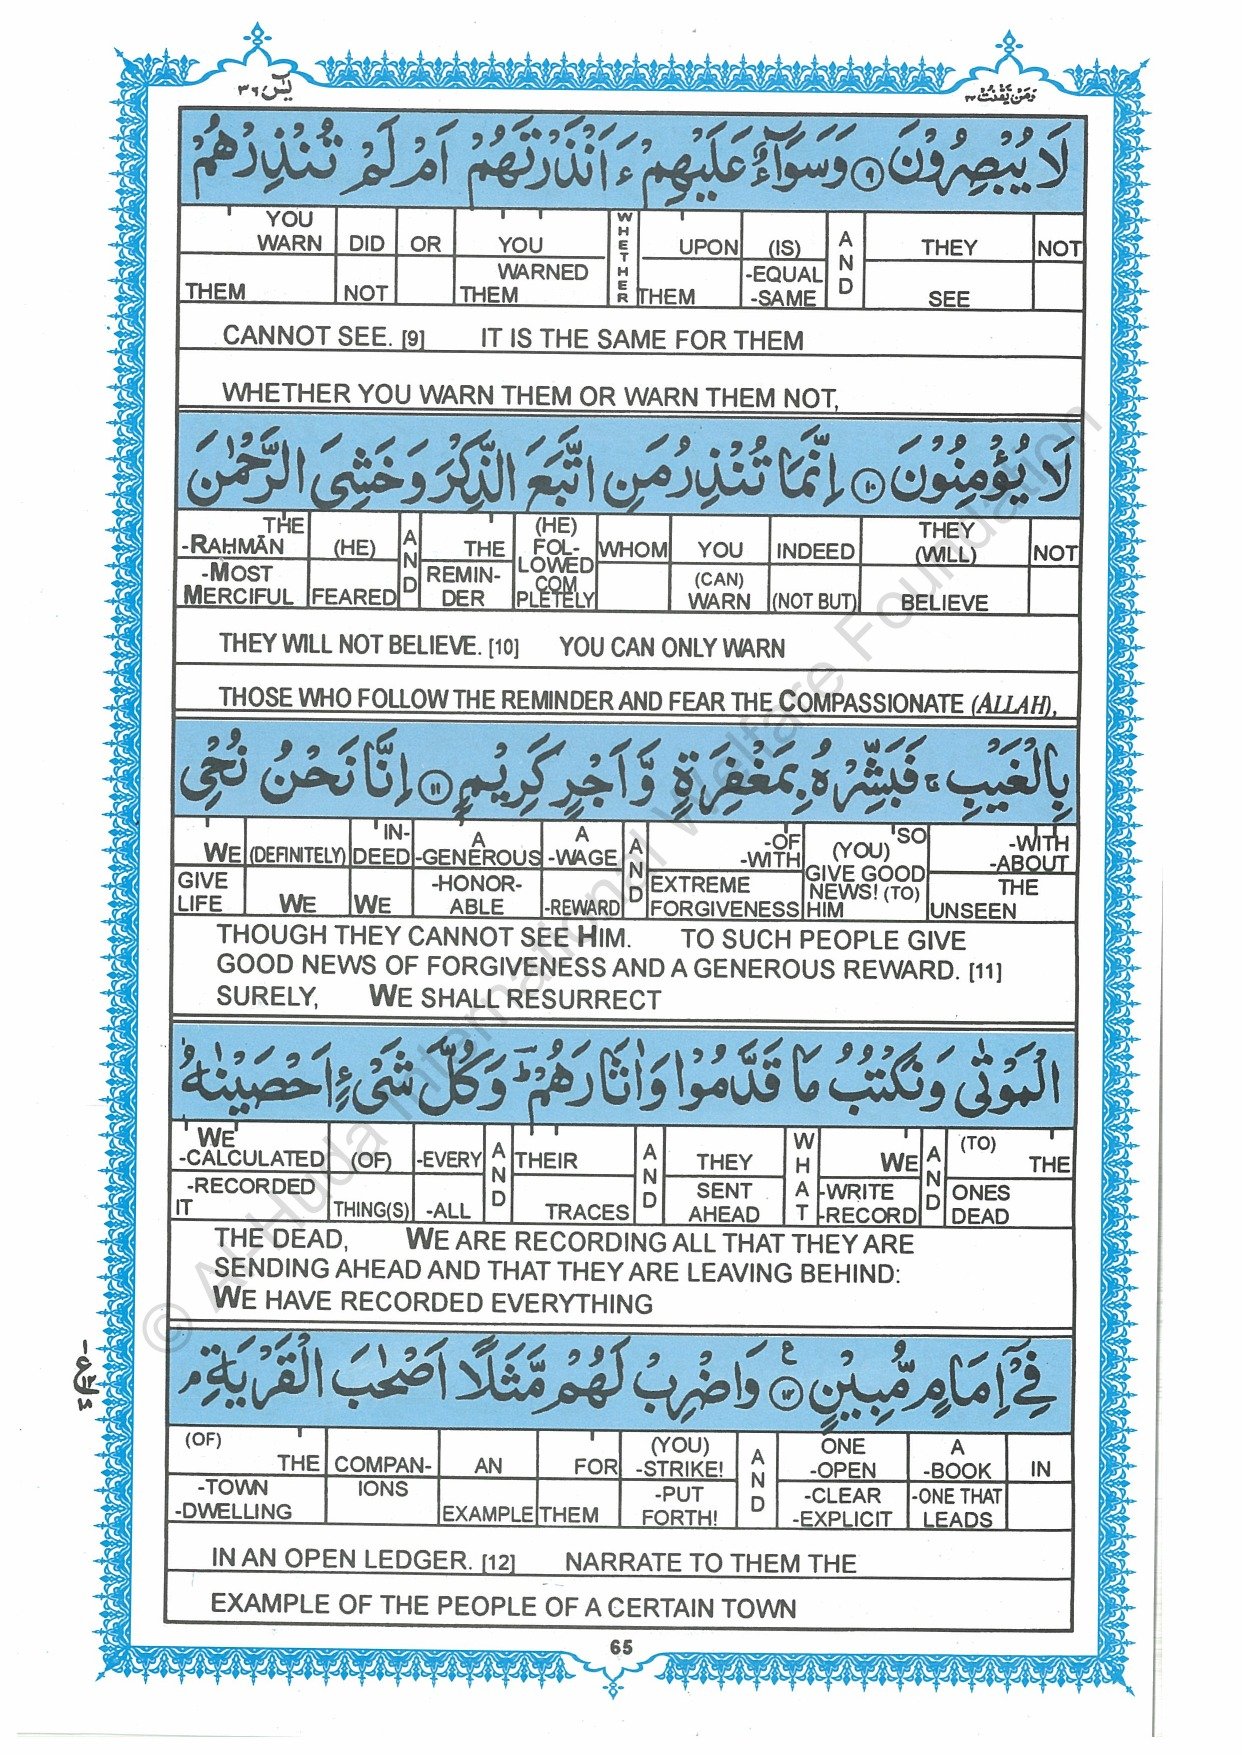 يٰسٓ ٣٦
وَمَنْ يَّقْنُتْ ٢٢
لَا يُبْصِرُوْنَ ۹ وَسَوَآءٌ عَلَيْهِمْ ءَاَنْذَرْتَهُمْ اَمْ لَمْ تُنْذِرْهُمْ
YOU WARN THEM | DID NOT | OR | YOU WARNED THEM | WHETHER | UPON THEM | (IS) -EQUAL -SAME | AND | THEY SEE | NOT
CANNOT SEE. [9] IT IS THE SAME FOR THEM
WHETHER YOU WARN THEM OR WARN THEM NOT,
لَا يُؤْمِنُوْنَ ۱۰ اِنَّمَا تُنْذِرُ مَنِ اتَّبَعَ الذِّكْرَ وَخَشِىَ الرَّحْمٰنَ
THE -RAHMĀN -MOST MERCIFUL | (HE) FEARED | AND | THE REMIN-DER | (HE) FOL-LOWED COM PLETELY | WHOM | YOU (CAN) WARN | INDEED (NOT BUT) | THEY (WILL) BELIEVE | NOT
THEY WILL NOT BELIEVE. [10] YOU CAN ONLY WARN
THOSE WHO FOLLOW THE REMINDER AND FEAR THE COMPASSIONATE (ALLAH),
بِالْغَيْبِ ۚ فَبَشِّرْهُ بِمَغْفِرَةٍ وَّاَجْرٍ كَرِيْمٍ ۱۱ اِنَّا نَحْنُ نُحْىِ
WE GIVE LIFE | (DEFINITELY) WE | IN-DEED WE | A -GENEROUS -HONOR-ABLE | A -WAGE -REWARD | AND | -OF -WITH EXTREME FORGIVENESS | SO (YOU) GIVE GOOD NEWS! (TO) HIM | -WITH -ABOUT THE UNSEEN
THOUGH THEY CANNOT SEE HIM. TO SUCH PEOPLE GIVE
GOOD NEWS OF FORGIVENESS AND A GENEROUS REWARD. [11]
SURELY, WE SHALL RESURRECT
الْمَوْتٰى وَنَكْتُبُ مَا قَدَّمُوْا وَاٰثَارَهُمْ ؕ وَكُلَّ شَىْءٍ اَحْصَيْنٰهُ
WE -CALCULATED -RECORDED IT | (OF) THING(S) | -EVERY -ALL | AND | THEIR TRACES | AND | THEY SENT AHEAD | WHAT | WE -WRITE -RECORD | AND | (TO) THE ONES DEAD
THE DEAD, WE ARE RECORDING ALL THAT THEY ARE
SENDING AHEAD AND THAT THEY ARE LEAVING BEHIND:
WE HAVE RECORDED EVERYTHING
فِىْٓ اِمَامٍ مُّبِيْنٍ ۱۲ ع وَاضْرِبْ لَهُمْ مَّثَلًا اَصْحٰبَ الْقَرْيَةِ ۘ
(OF) THE -TOWN -DWELLING | COMPAN-IONS | AN EXAMPLE | FOR THEM | (YOU) -STRIKE! -PUT FORTH! | AND | ONE -OPEN -CLEAR -EXPLICIT | A -BOOK -ONE THAT LEADS | IN
IN AN OPEN LEDGER. [12] NARRATE TO THEM THE
EXAMPLE OF THE PEOPLE OF A CERTAIN TOWN
65
© Al-Huda International Welfare Foundation